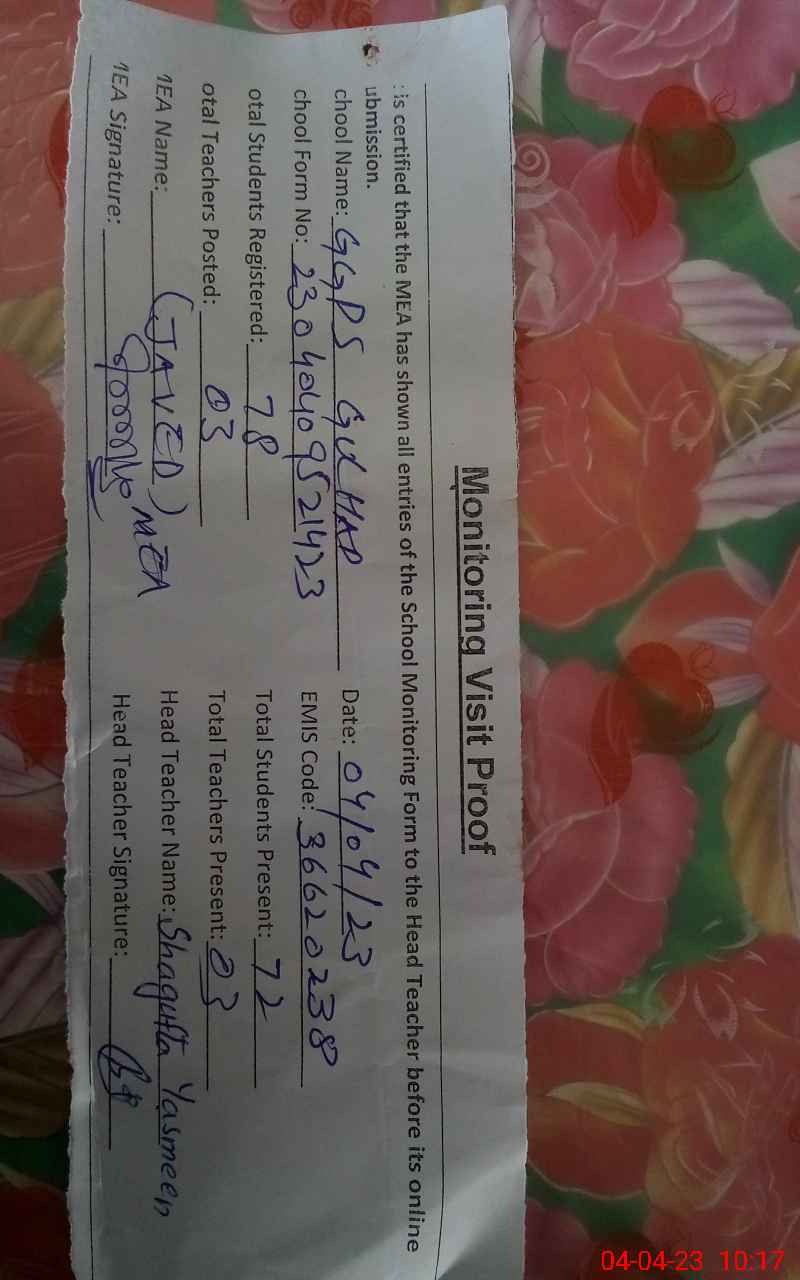 Monitoring Visit Proof
: is certified that the MEA has shown all entries of the School Monitoring Form to the Head Teacher before its online
ubmission.
chool Name: GGPS Date: 04/04/23
chool Form No: 23040409521423 EMIS Code: 36620238
otal Students Registered: 78 Total Students Present: 72
otal Teachers Posted: 03 Total Teachers Present: 03
MEA Name: (JAVED) MEA Head Teacher Name: Shagufta Yasmeen
MEA Signature: Head Teacher Signature:
04-04-23 10:17